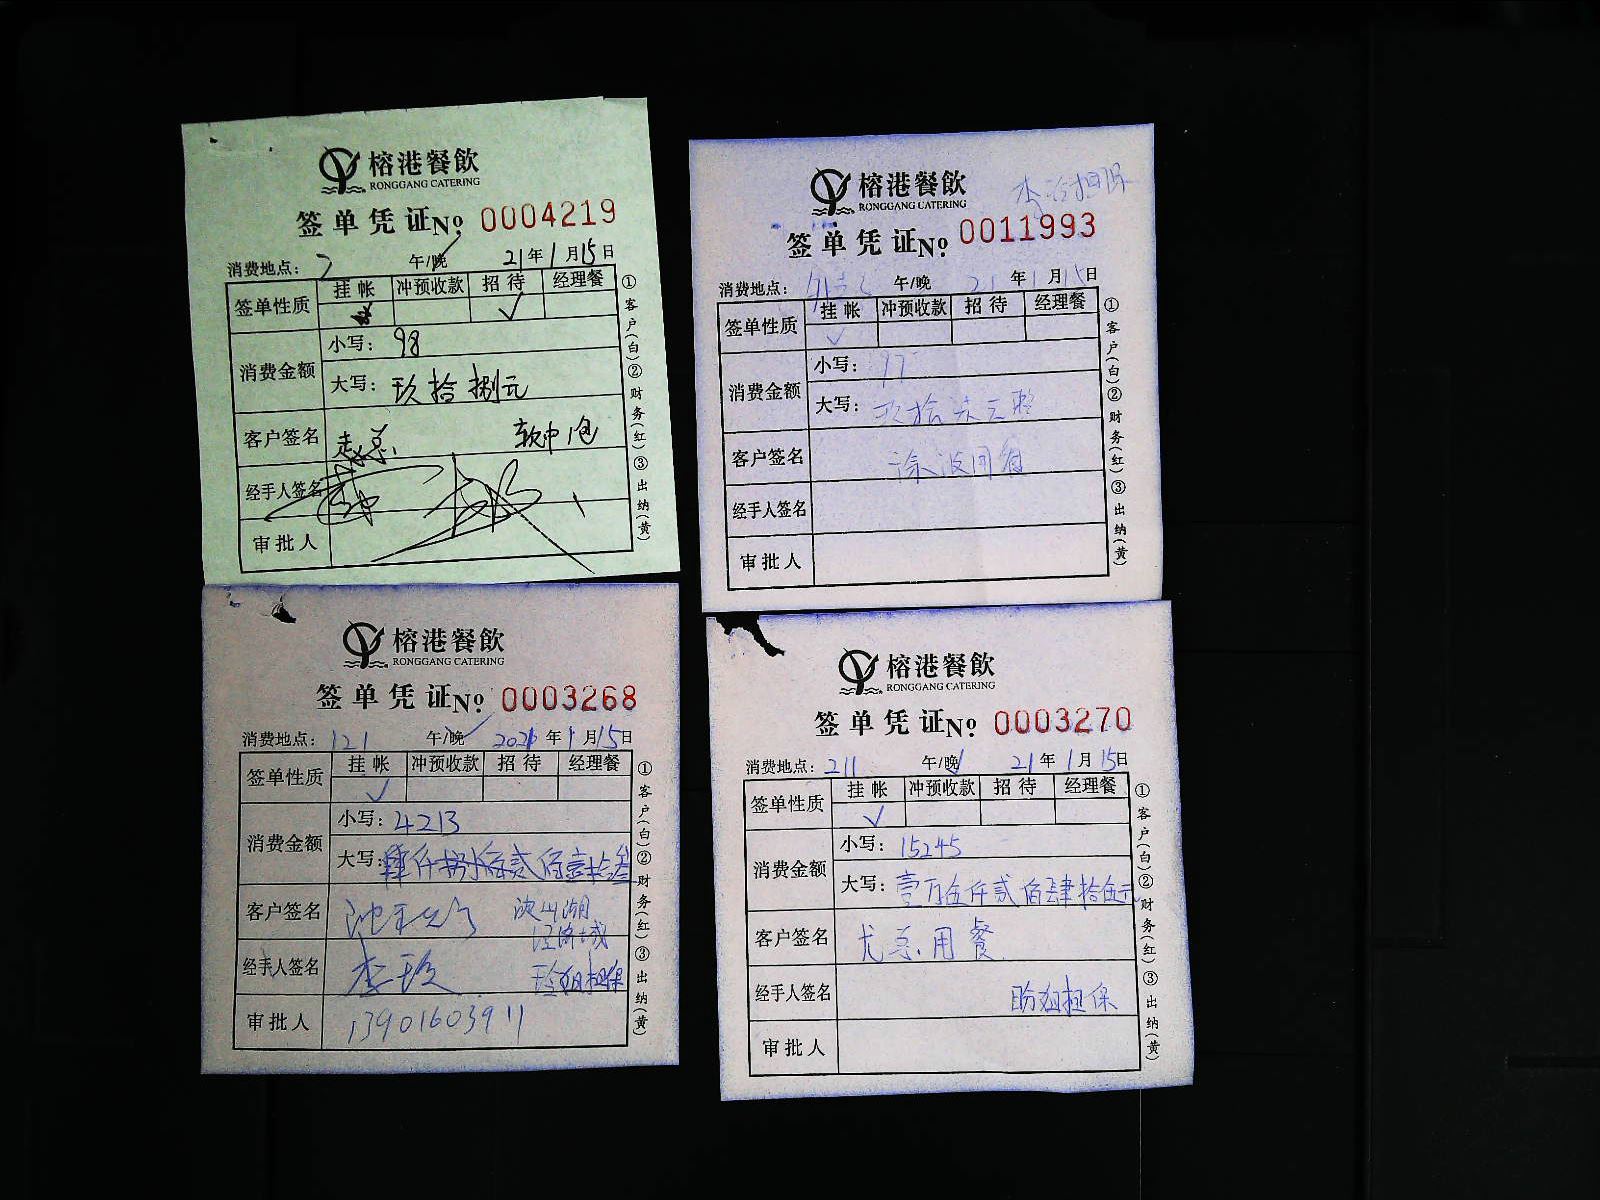 榕港餐飲
RONGGANG CATERING
签单凭证 No 0004219
消费地点： 7 午/晚 21年1月15日
签单性质 挂帐 冲预收款 招待 经理餐
✓
消费金额 小写：98
大写：玖拾捌元
客户签名 赵总. 软中1包
经手人签名
审批人
①客户(白)②财务(红)③出纳(黄)
榕港餐飲
RONGGANG CATERING
担保
签单凭证 No 0011993
消费地点： 午/晚 21年1月15日
签单性质 挂帐 冲预收款 招待 经理餐
✓
消费金额 小写：97
大写：玖拾柒元整
客户签名 徐波用
经手人签名
审批人
①客户(白)②财务(红)③出纳(黄)
榕港餐飲
RONGGANG CATERING
签单凭证 No 0003268
消费地点：121 午/晚 2021年1月15日
签单性质 挂帐 冲预收款 招待 经理餐
✓
消费金额 小写：4213
大写：仟 贰佰壹拾叁
客户签名 淀山湖
经济城
经手人签名 李玲 玲姐担保
审批人 13901603911
①客户(白)②财务(红)③出纳(黄)
榕港餐飲
RONGGANG CATERING
签单凭证 No 0003270
消费地点：211 午/晚 21年1月15日
签单性质 挂帐 冲预收款 招待 经理餐
✓
消费金额 小写：15245
大写：壹万伍仟贰佰肆拾伍元
客户签名 尤总用餐
经手人签名 盼姐担保
审批人
①客户(白)②财务(红)③出纳(黄)